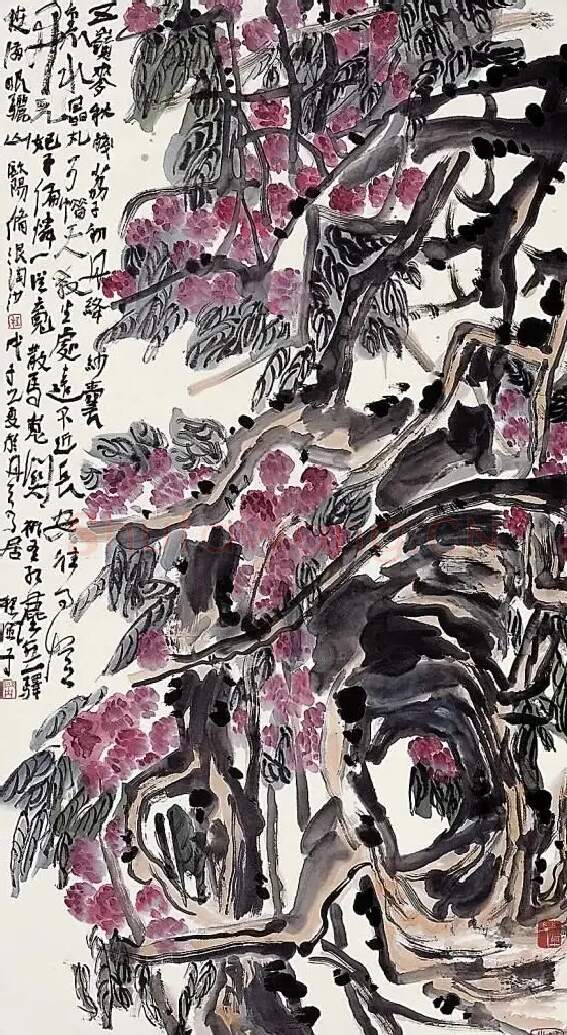 五嶺麥秋殘荔子初丹絳紗囊
裏水晶丸可惜天教生處遠不近長安往事憶
開元妃子偏憐一從魂散馬嵬關祇有紅塵無驛
使滿眼驪山歐陽脩浪淘沙
之夏於丹居
程